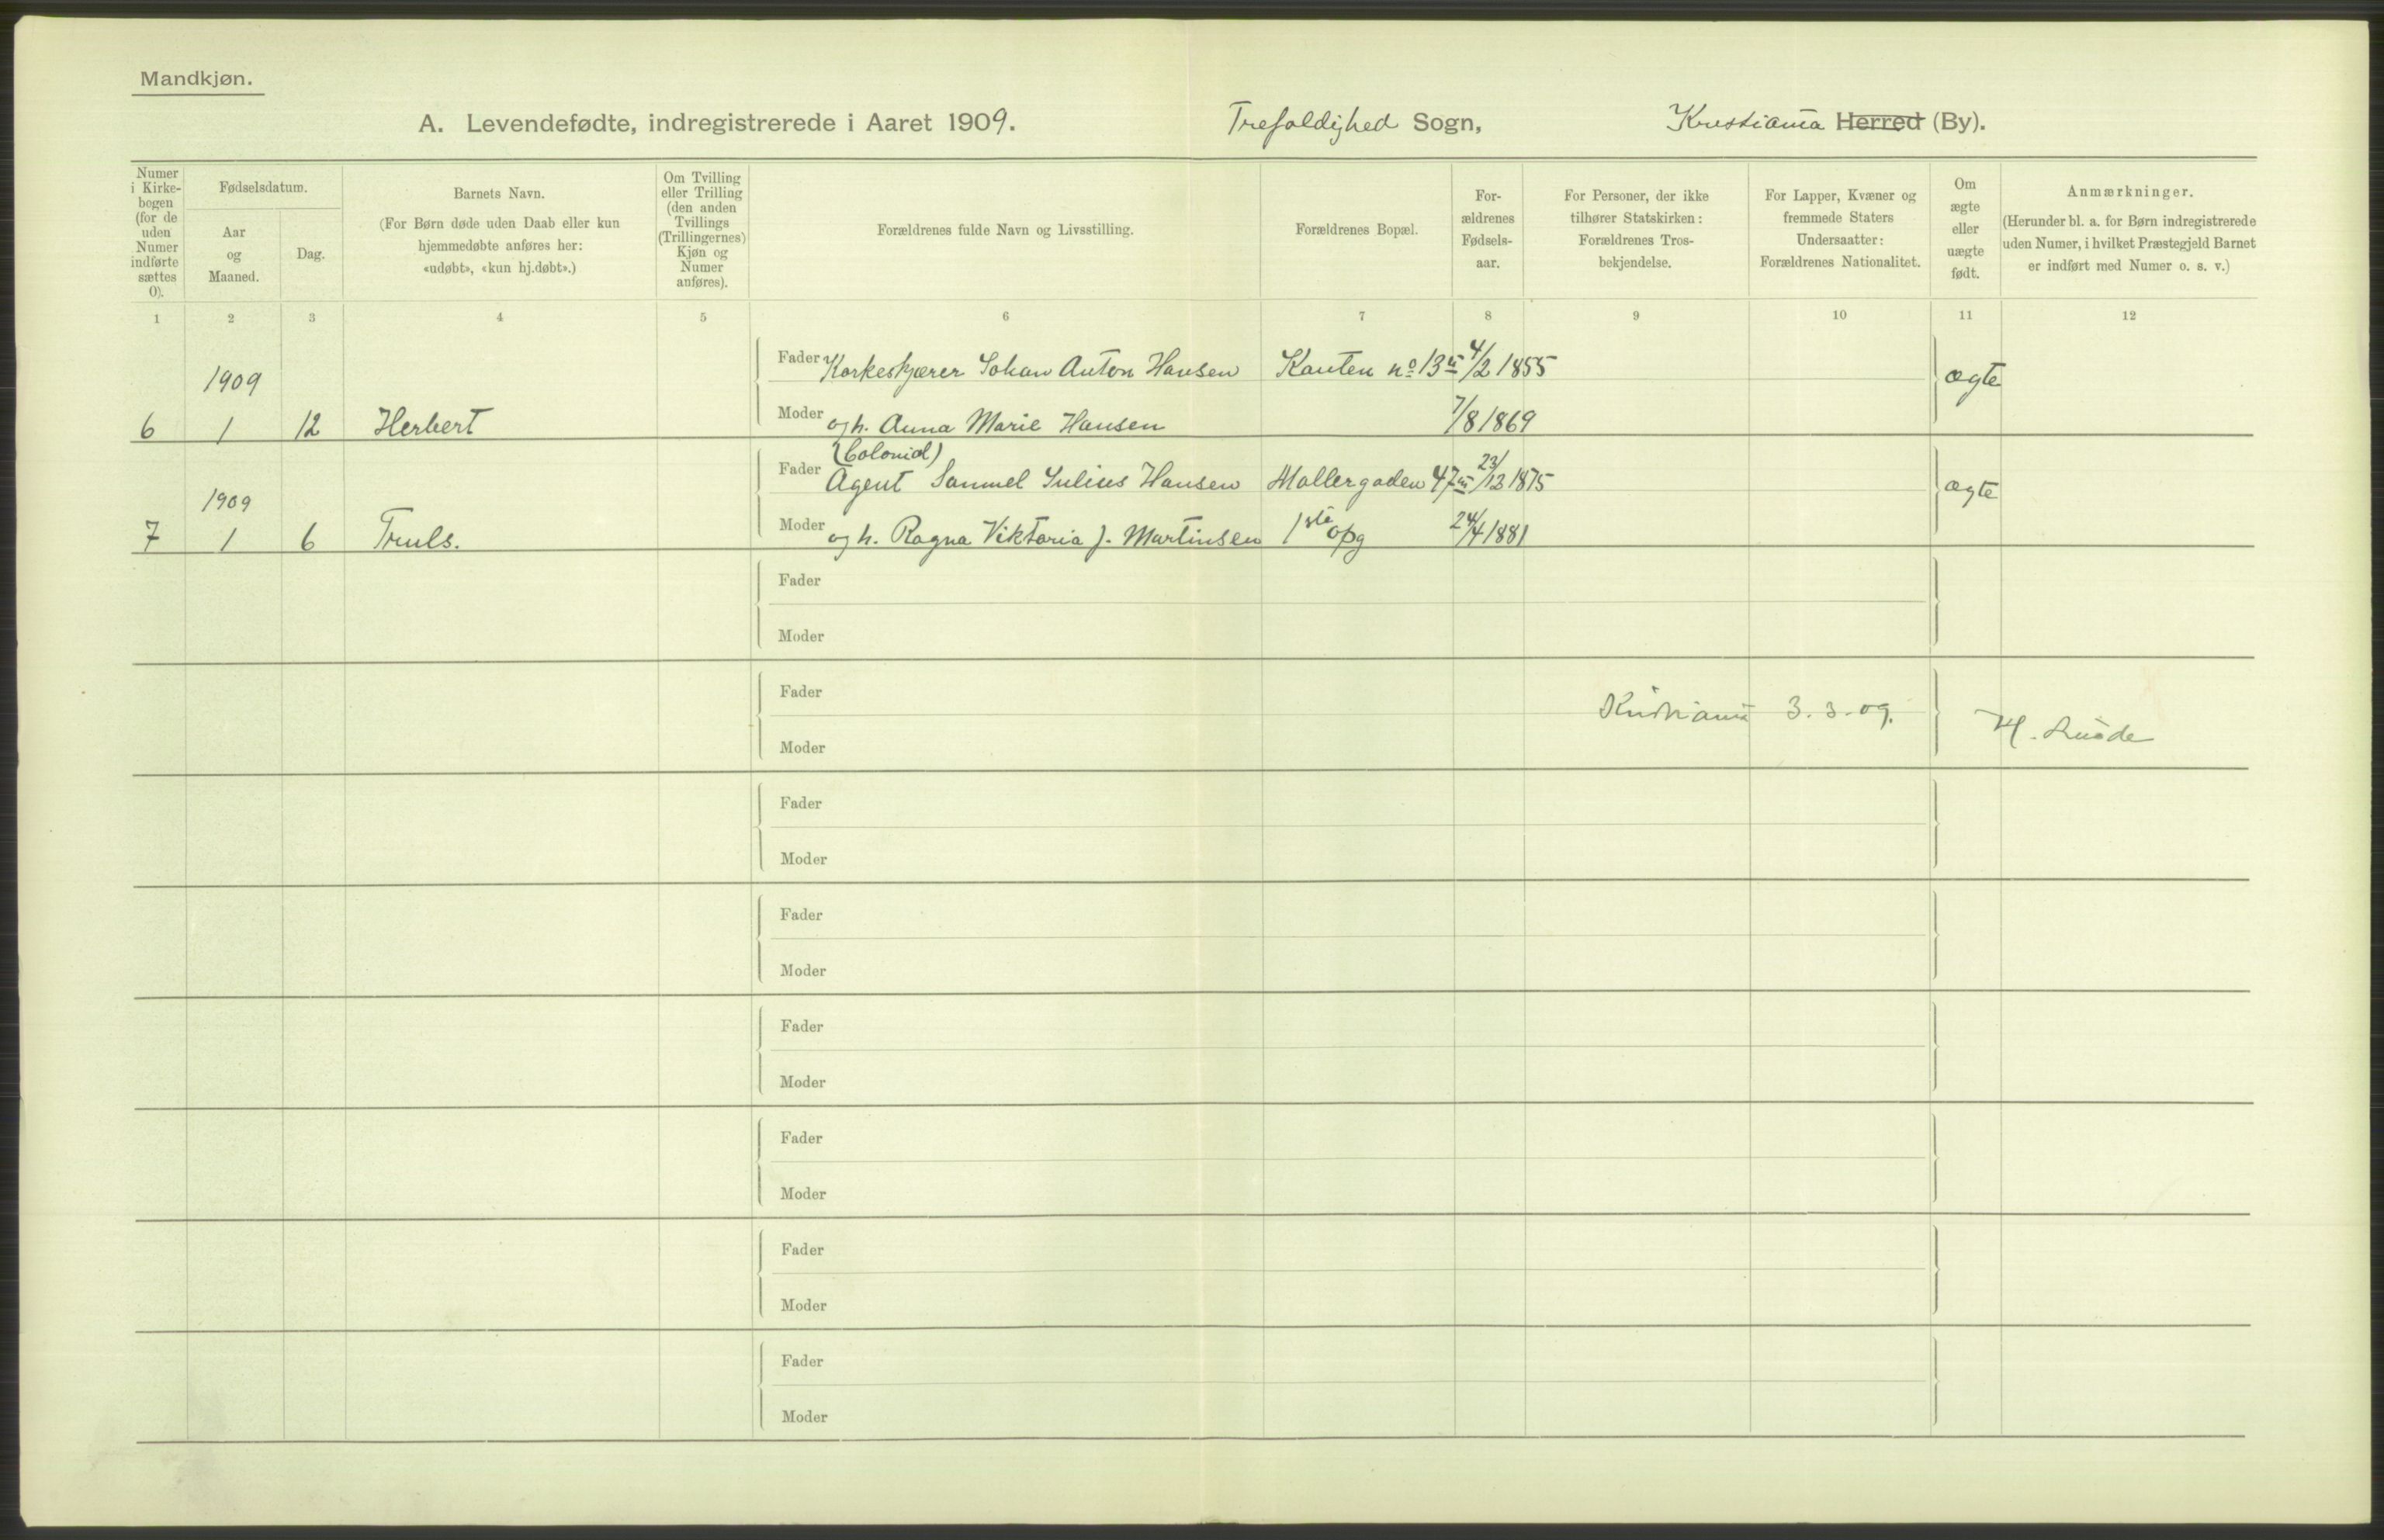 Mandkjøn.
A. Levendefødte, indregistrerede i Aaret 1909. Trefoldighed Sogn, Kristiania Herred (By).
Numer i Kirke-bogen (for de uden Numer indførte sættes 0).
Fødselsdatum.
Aar og Maaned.
Dag.
Barnets Navn.
(For Børn døde uden Daab eller kun
hjemmedøbte anføres her:
«udøbt», «kun hj.døbt».)
Om Tvilling
eller Trilling
(den anden
Tvillings
(Trillingernes)
Kjøn og
Numer
anføres).
Forældrenes fulde Navn og Livsstilling.
Forældrenes Bopæl.
For-
ældrenes
Fødsels-
aar.
For Personer, der ikke
tilhører Statskirken:
Forældrenes Tros-
bekjendelse.
For Lapper, Kvæner og
fremmede Staters
Undersaatter:
Forældrenes Nationalitet.
Om
ægte
eller
uægte
født.
Anmærkninger.
(Herunder bl. a. for Børn indregistrerede
uden Numer, i hvilket Præstegjeld Barnet
er indført med Numer o. s. v.)
1 2 3 4 5 6 7 8 9 10 11 12
Fader Korkeskjærer Johan Anton Hansen Kanten no 13 4/2 1855 ægte
1909
6 1 12 Herbert Moder og h. Anna Marie Hansen 7/8 1869
(Colonial)
Fader Agent Samuel Julius Hansen Møllergaden 47 III 23/12 1875 ægte
1909
7 1 6 Truls. Moder og h. Ragna Viktoria f. Martinsen 1ste opg 24/4 1881
Fader
Moder
Fader
Kristiania 3.3.09.
Moder
Fader
Moder
Fader
Moder
Fader
Moder
Fader
Moder
Fader
Moder
Fader
Moder